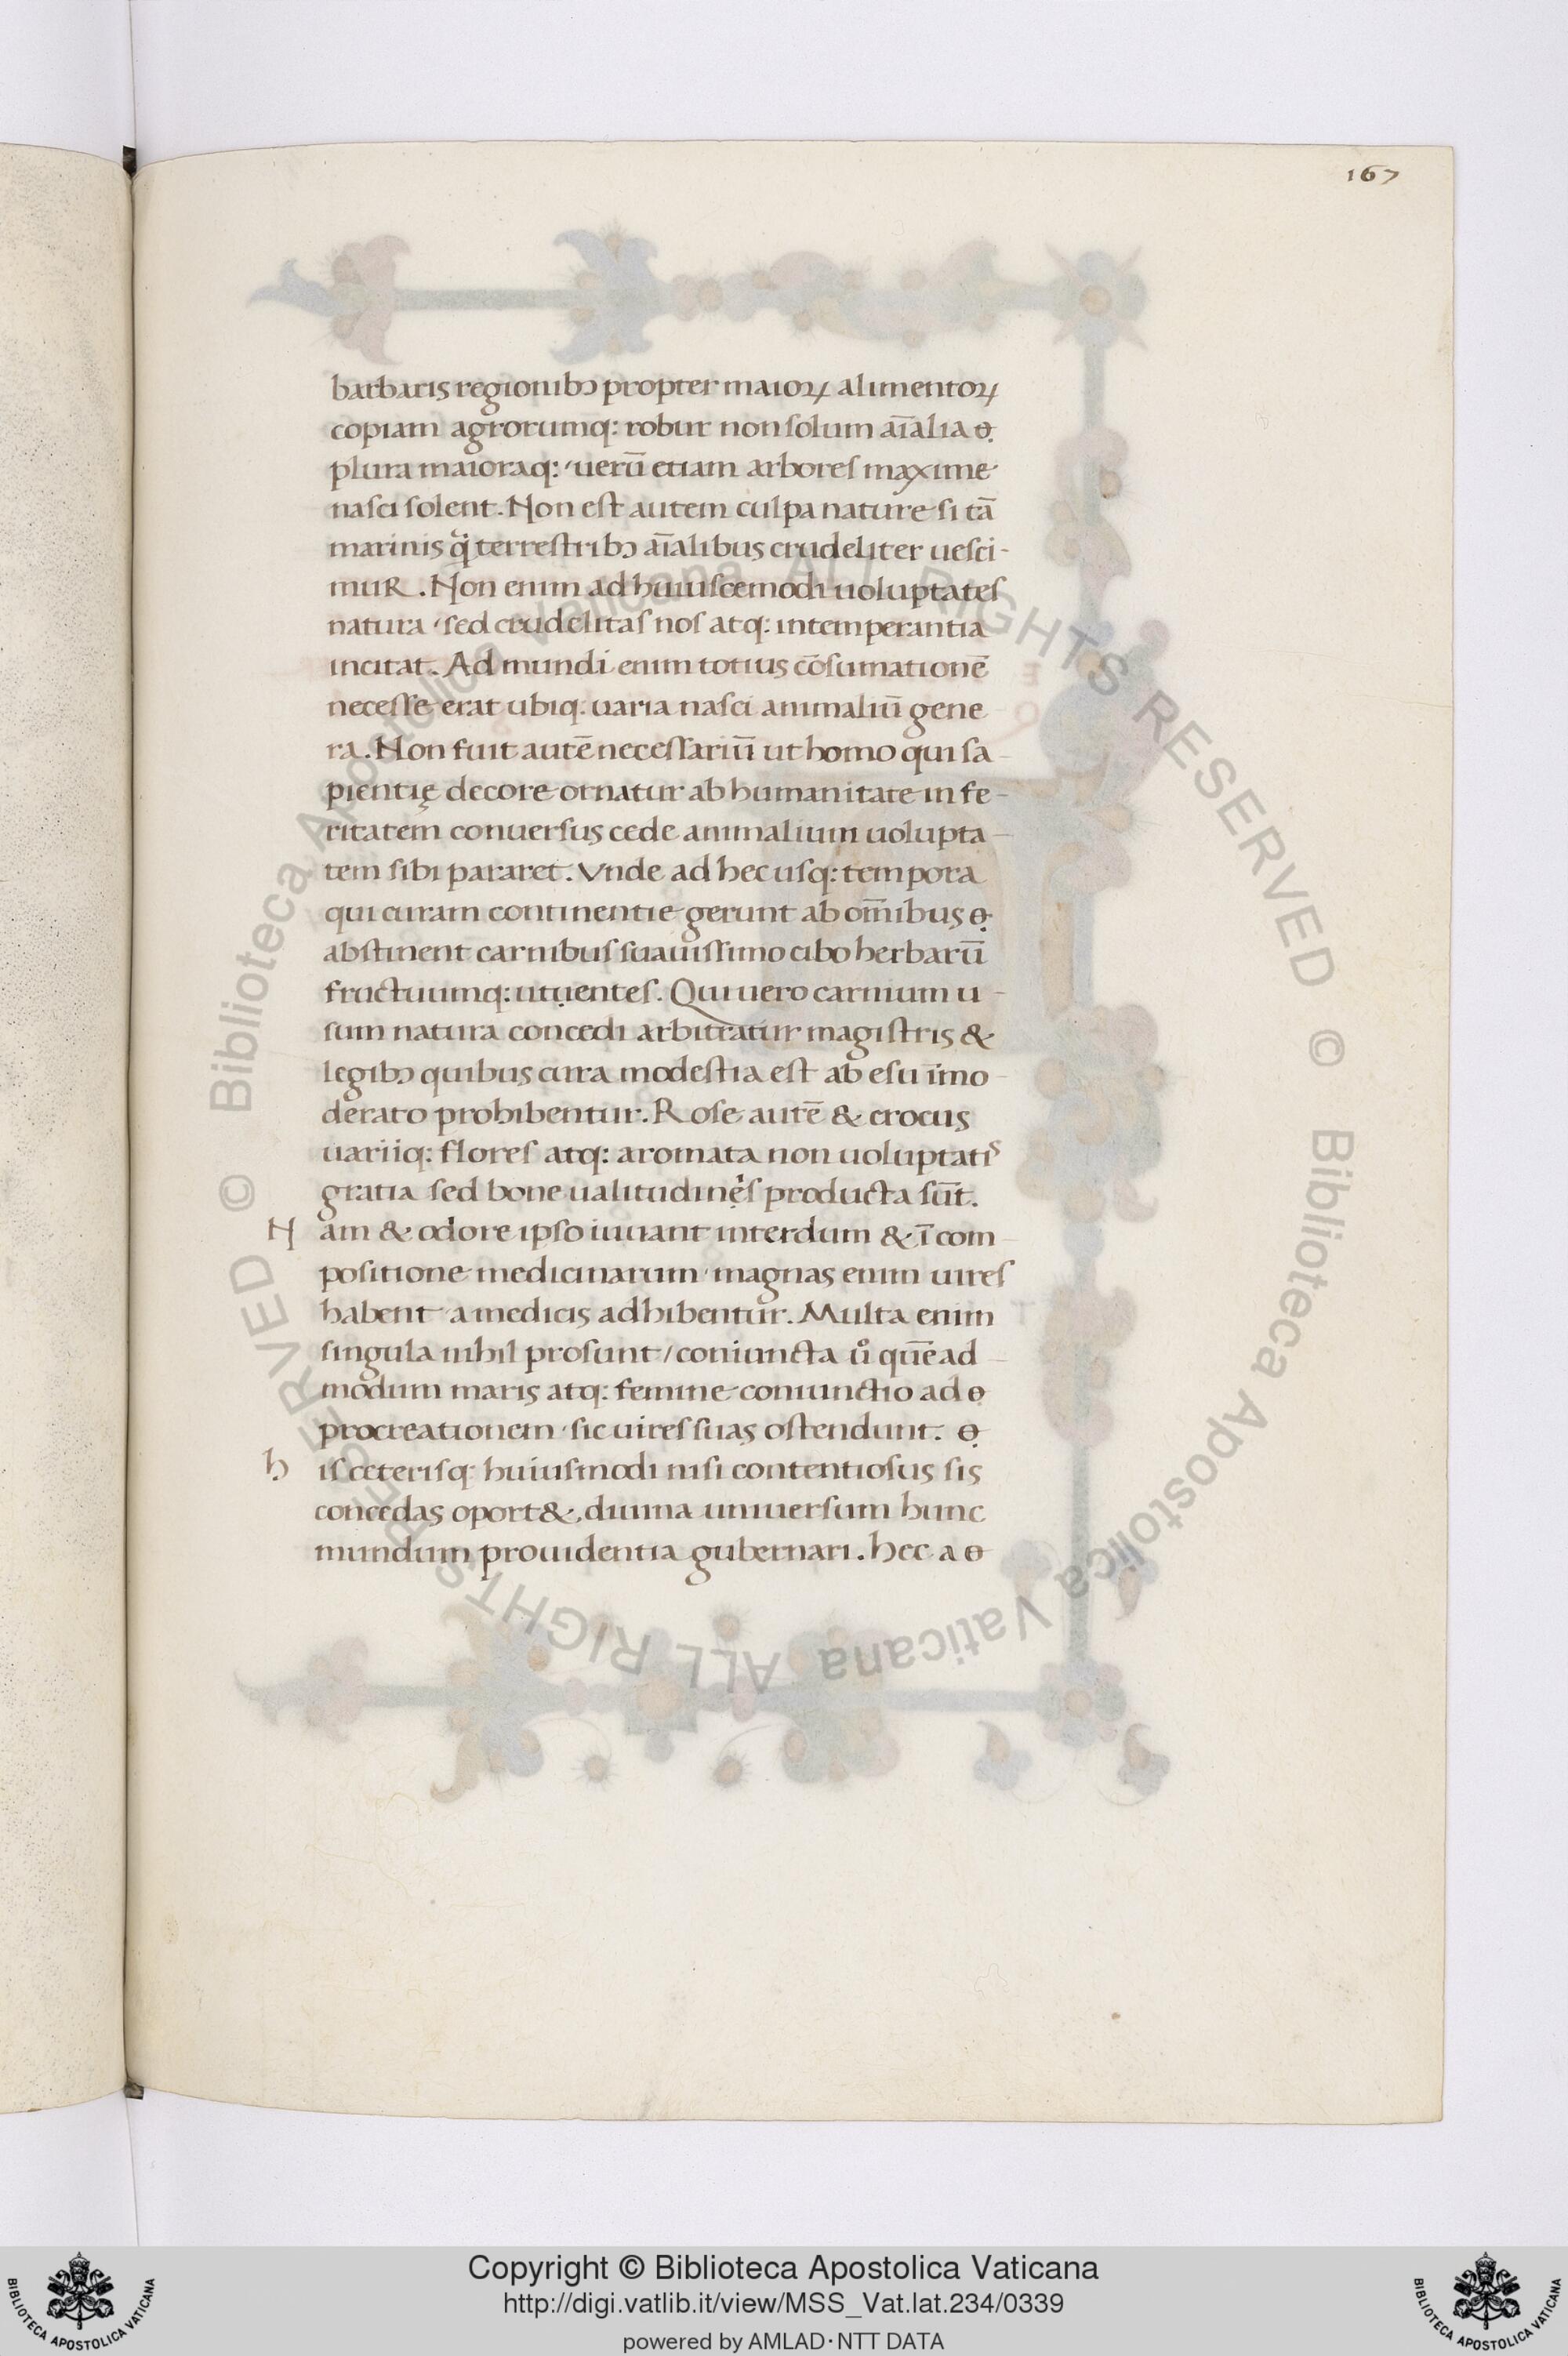 167
barbaris regionibꝰ propter maioꝝ alimentoꝝ
copiam agrorumq: robur non solum aīalia ꝋ
plura maioraq: uerū etiam arbores maxime
nasci solent. Non est autem culpa nature si tā
marinis q̃ terrestribꝰ aīalibus crudeliter uesci-
mur. Non enim ad huiuscemodi uoluptates
natura sed crudelitas nos atq: intemperantia
incitat. Ad mundi enim totius cōsumationē
necesse erat ubiq. uaria nasci animaliū gene
ra. Non fuit autē necessariū ut homo qui sa-
pientię decore ornatur ab humanitate in fe-
ritatem conuersus cede animalium uolupta-
tem sibi pararet. Vnde ad hec usq: tempora
qui curam continentie gerunt ab om̄ibus ꝋ
abstinent carnibus suauissimo cibo herbarū
fructuumq: utụentes. Qui uero carnium u-
sum natura concedi arbitratur magistris &
legibꝰ quibus cura modestia est ab esu īmo-
derato prohibentur. Rose autē & crocus
uariiq: flores atq: aromata non uoluptatis
gratia sed bone ualitudinẹis producta sūt.
Nam & odore ipso iuuant interdum & ī com-
positione medicinarum magnas enim uires
habent a medicis adhibentur. Multa enim
singula nihil prosunt / coniuncta uͦ quēad-
modum maris atq: femine coniunctio ad ꝋ
procreationem sic uires suas ostendunt. ꝋ
his ceterisq: huiusmodi nisi contentiosus sis
concedas oport&, diuina uniuersum hunc
mundum prouidentia gubernari. hec a ꝋ
© Biblioteca Apostolica Vaticana ALL RIGHTS RESERVED © Biblioteca Apostolica Vaticana ALL RIGHTS RESERVED
Copyright © Biblioteca Apostolica Vaticana
http://digi.vatlib.it/view/MSS_Vat.lat.234/0339
powered by AMLAD·NTT DATA
BIBLIOTECA APOSTOLICA VATICANA
BIBLIOTECA APOSTOLICA VATICANA